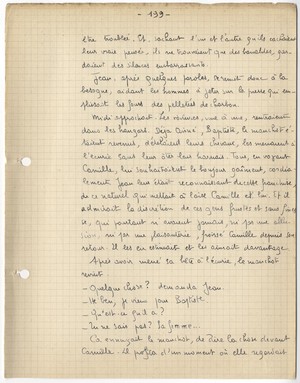 - 199 -
être troublé. Et, sachant l'un et l'autre qu'ils cachaient
leur vraie pensée, ils ne trouvaient que des banalités, gar-
daient des silences embarrassants.
Jean, après quelques paroles, se remit donc à la
besogne, aidant les hommes à jeter sur la pierre qui em-
plissait les fours des pelletées de charbon.
Midi approchait. Les voitures, une à une, rentraient
dans les hangars. Déjà Aimé, Baptiste, le manchot é-
taient revenus, dételaient leurs chevaux, les menaient à
l'écurie sans leur ôter leur harnais. Tous, en voyant
Camille, lui souhaitaient le bonjour gaîment, cordia-
lement. Jean leur était reconnaissant de cette
de ce naturel qui mettait à l'aise Camille et lui. Et il
admirait la discrétion de ces gens frustes et sans
qui pourtant n'avaient jamais, ni par une allu-
sion, ni par une plaisanterie, froissé Camille depuis son
retour. Il les en estimait et les aimait davantage.
Après avoir mené sa bête à l'écurie, le manchot
revint
- Quelque chose ? demanda Jean.
- Hé ben, je viens pour Baptiste
- Qu'est-ce qu'il a ?
- Tu ne sais pas ? Sa femme...
Ça ennuyait le manchot, de dire la chose devant
Camille. Il profita d'un moment où elle regardait